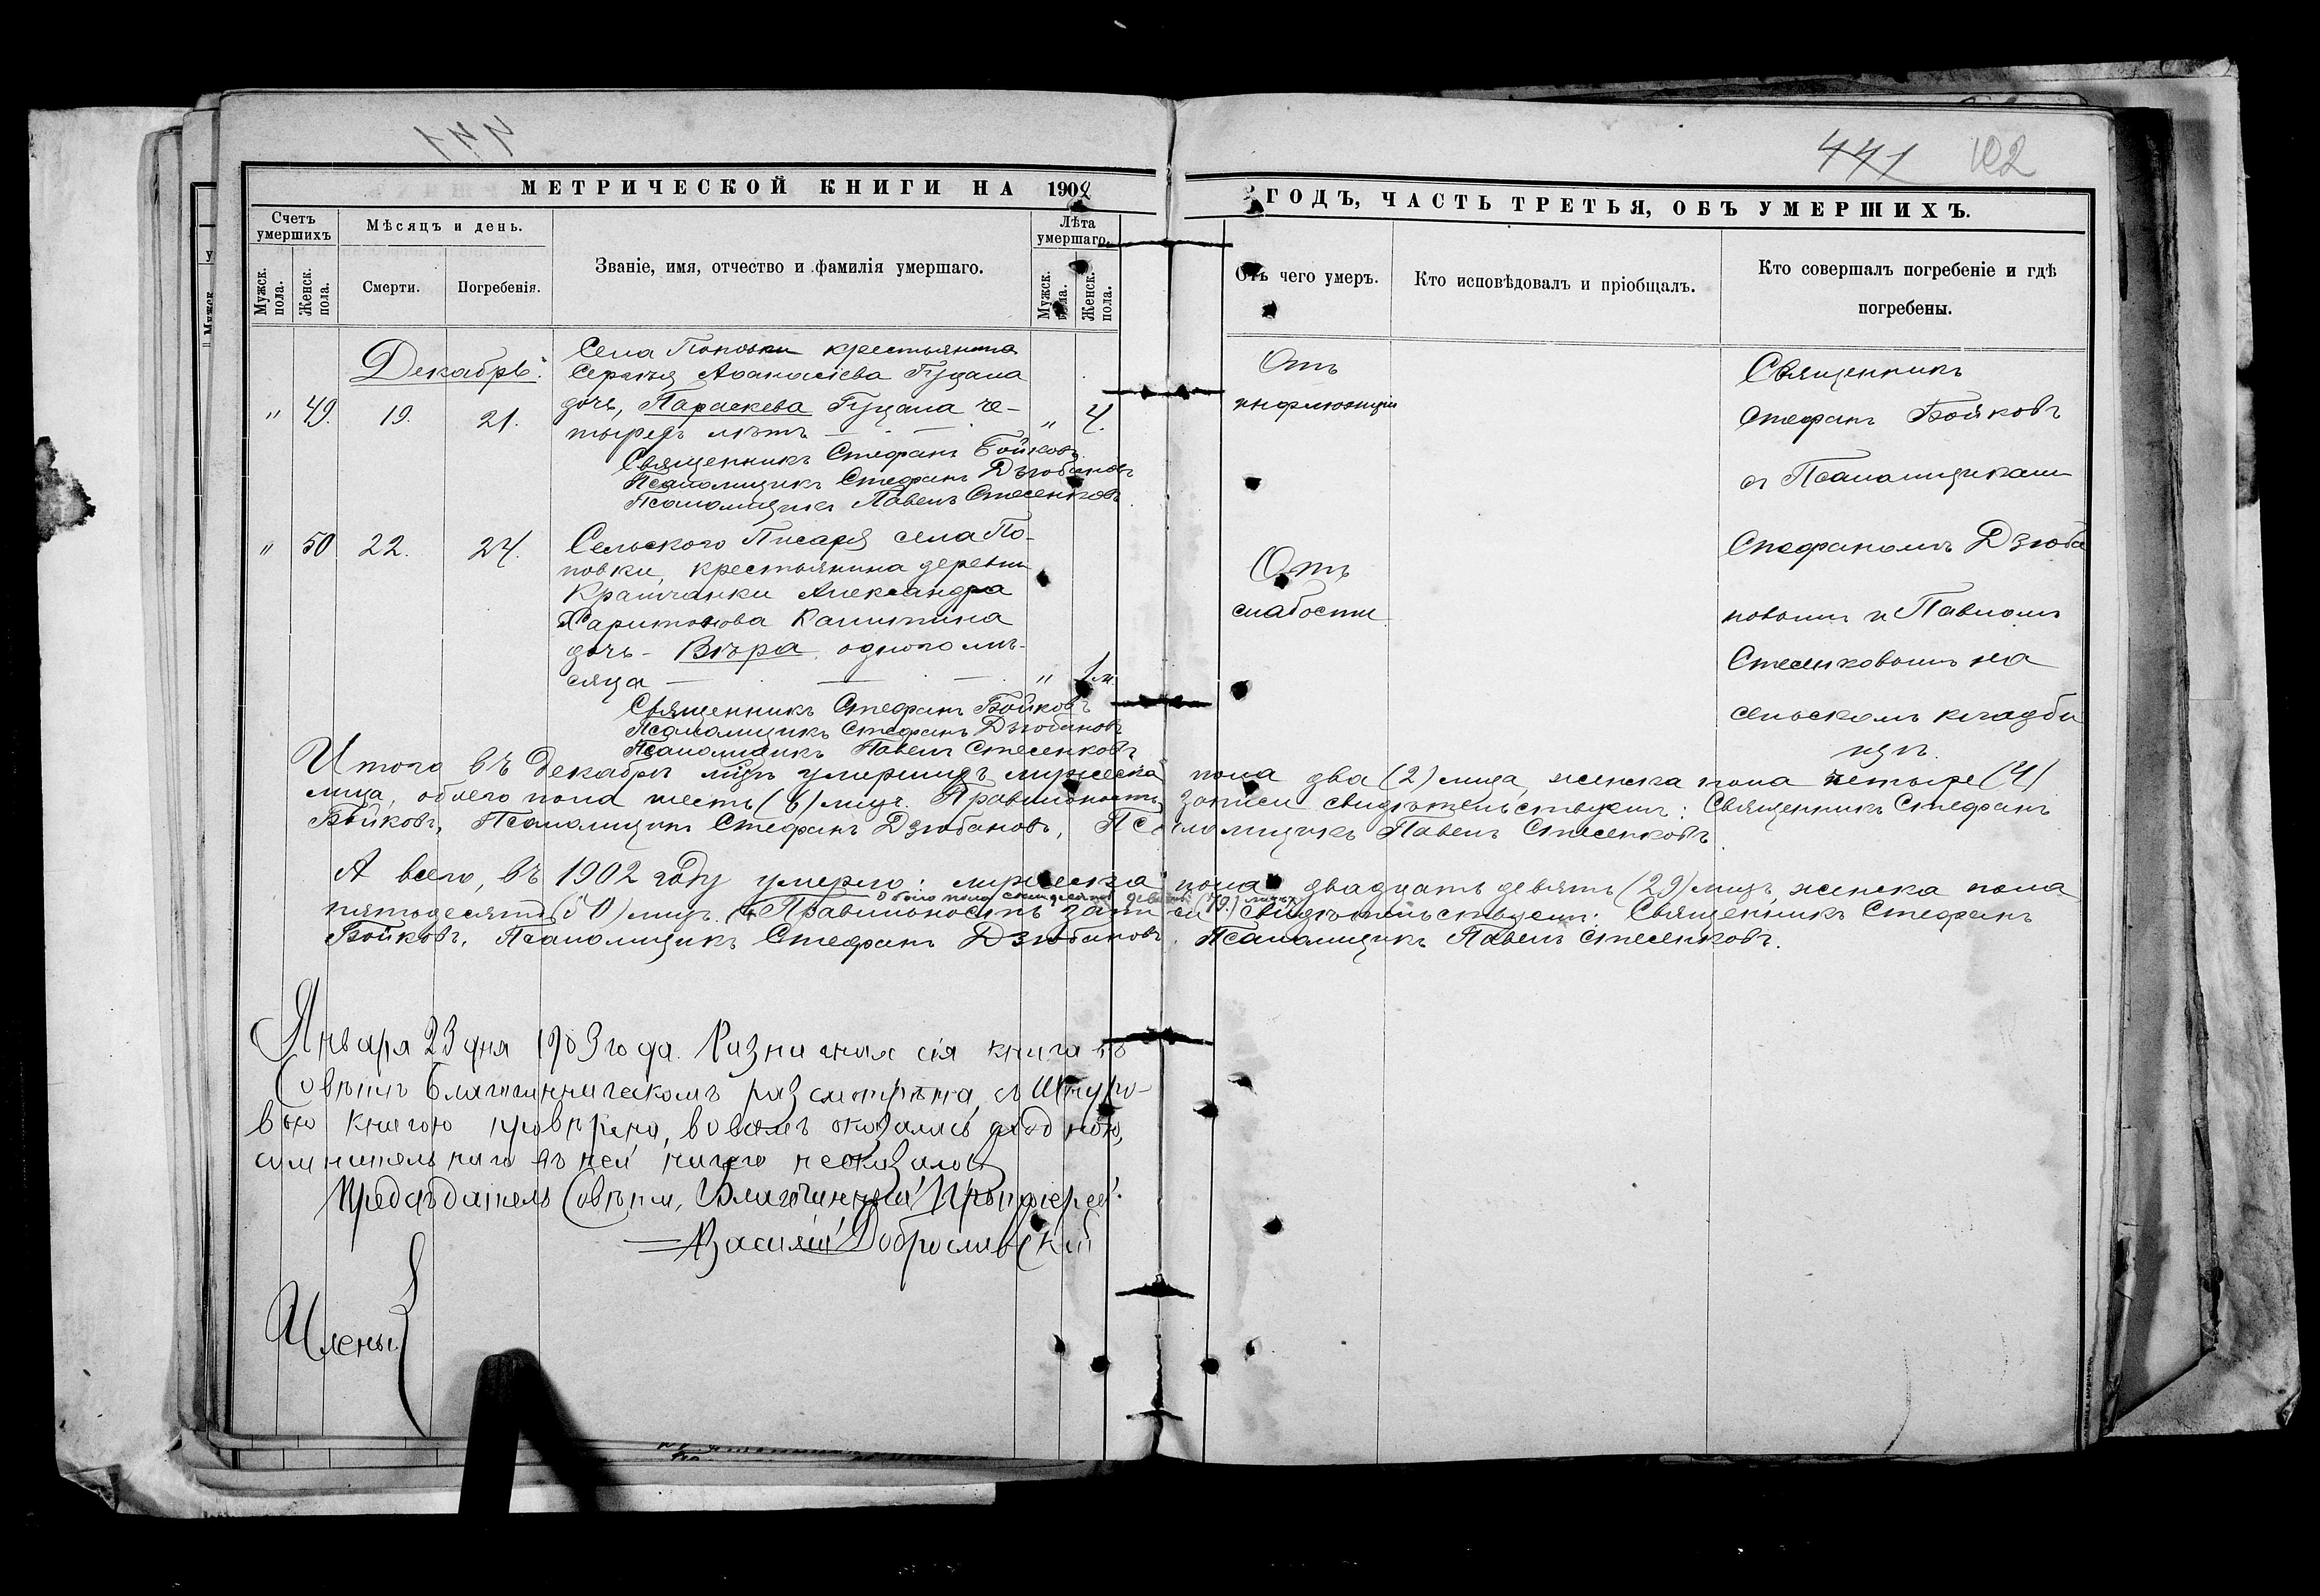 441
441 102
МЕТРИЧЕСКОЙ КНИГИ НА 1902
ГОДЪ, ЧАСТЬ ТРЕТЬЯ, ОБЪ УМЕРШИХЪ.
Счетъ умершихъ
Мѣсяцъ и день.
Званіе, имя, отчество и фамилія умершаго.
Лѣта умершаго.
Мужск. пола.
Женск. пола.
Смерти.
Погребенія.
Мужск. пола.
Женск. пола.
Отъ чего умеръ.
Кто исповѣдовалъ и пріобщалъ.
Кто совершалъ погребеніе и гдѣ
погребены.
Декабрь.
Села Поповки крестьянина
Сергѣя Аѳанасіева Гуцала
" 49. 19. 21. дочь, Параскева Гуцала че-
тырехъ лѣтъ — " 4.
Священникъ Стефанъ Бойковъ
Псаломщикъ Стефанъ Дзюбановъ
Псаломщикъ Павелъ Стесенковъ
Отъ
инфлюэнціи
" 50 22. 24. Сельскаго Писаря села По-
повки, крестьянина деревни
Александра
Харитонова
дочь - Вѣра, одного мѣ-
сяца — " 1 м.
Священникъ Стефанъ Бойковъ
Псаломщикъ Стефанъ Дзюбановъ
Псаломщикъ Павелъ Стесенковъ
Отъ
слабости
Священникъ
Стефанъ Бойковъ
съ Псаломщиками
Стефаномъ Дзюба
новымъ и Павломъ
Стесенковымъ на
сельскомъ кладби
щѣ.
Итого въ Декабрѣ мцѣ умершихъ мужеска пола два (2) лица, женска пола четыре (4)
лица, обоего пола шесть (6) лицъ. Правильность записи свидѣтельствуемъ: Священникъ Стефанъ
Бойковъ, Псаломщикъ Стефанъ Дзюбановъ, Псаломщикъ Павелъ Стесенковъ.
А всего, въ 1902 году умерло: мужеска пола двадцать девять (29) лицъ, женска пола
обоего пола семьдесятъ девять (79) лицъ
пятьдесятъ (50) лицъ. Правильность записи свидѣтельствуемъ: Священникъ Стефанъ
Бойковъ, Псаломщикъ Стефанъ Дзюбановъ, Псаломщикъ Павелъ Стесенковъ.
Января 23 дня 1903 года. сія книга въ
Совѣтѣ Благочинническомъ разсмотрѣна, съ Шнуро-
вою книгою провѣрена, во всемъ оказалась сходною,
сумнительнаго въ ней ничего неоказалось
Предсѣдатель Совѣта, Благочинный Протоіерей
Василій Доброславскій
Члены